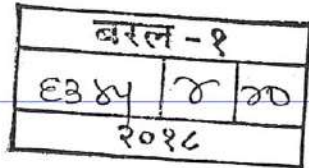 बरल - १
६३४५ ४ ४०
२०१८